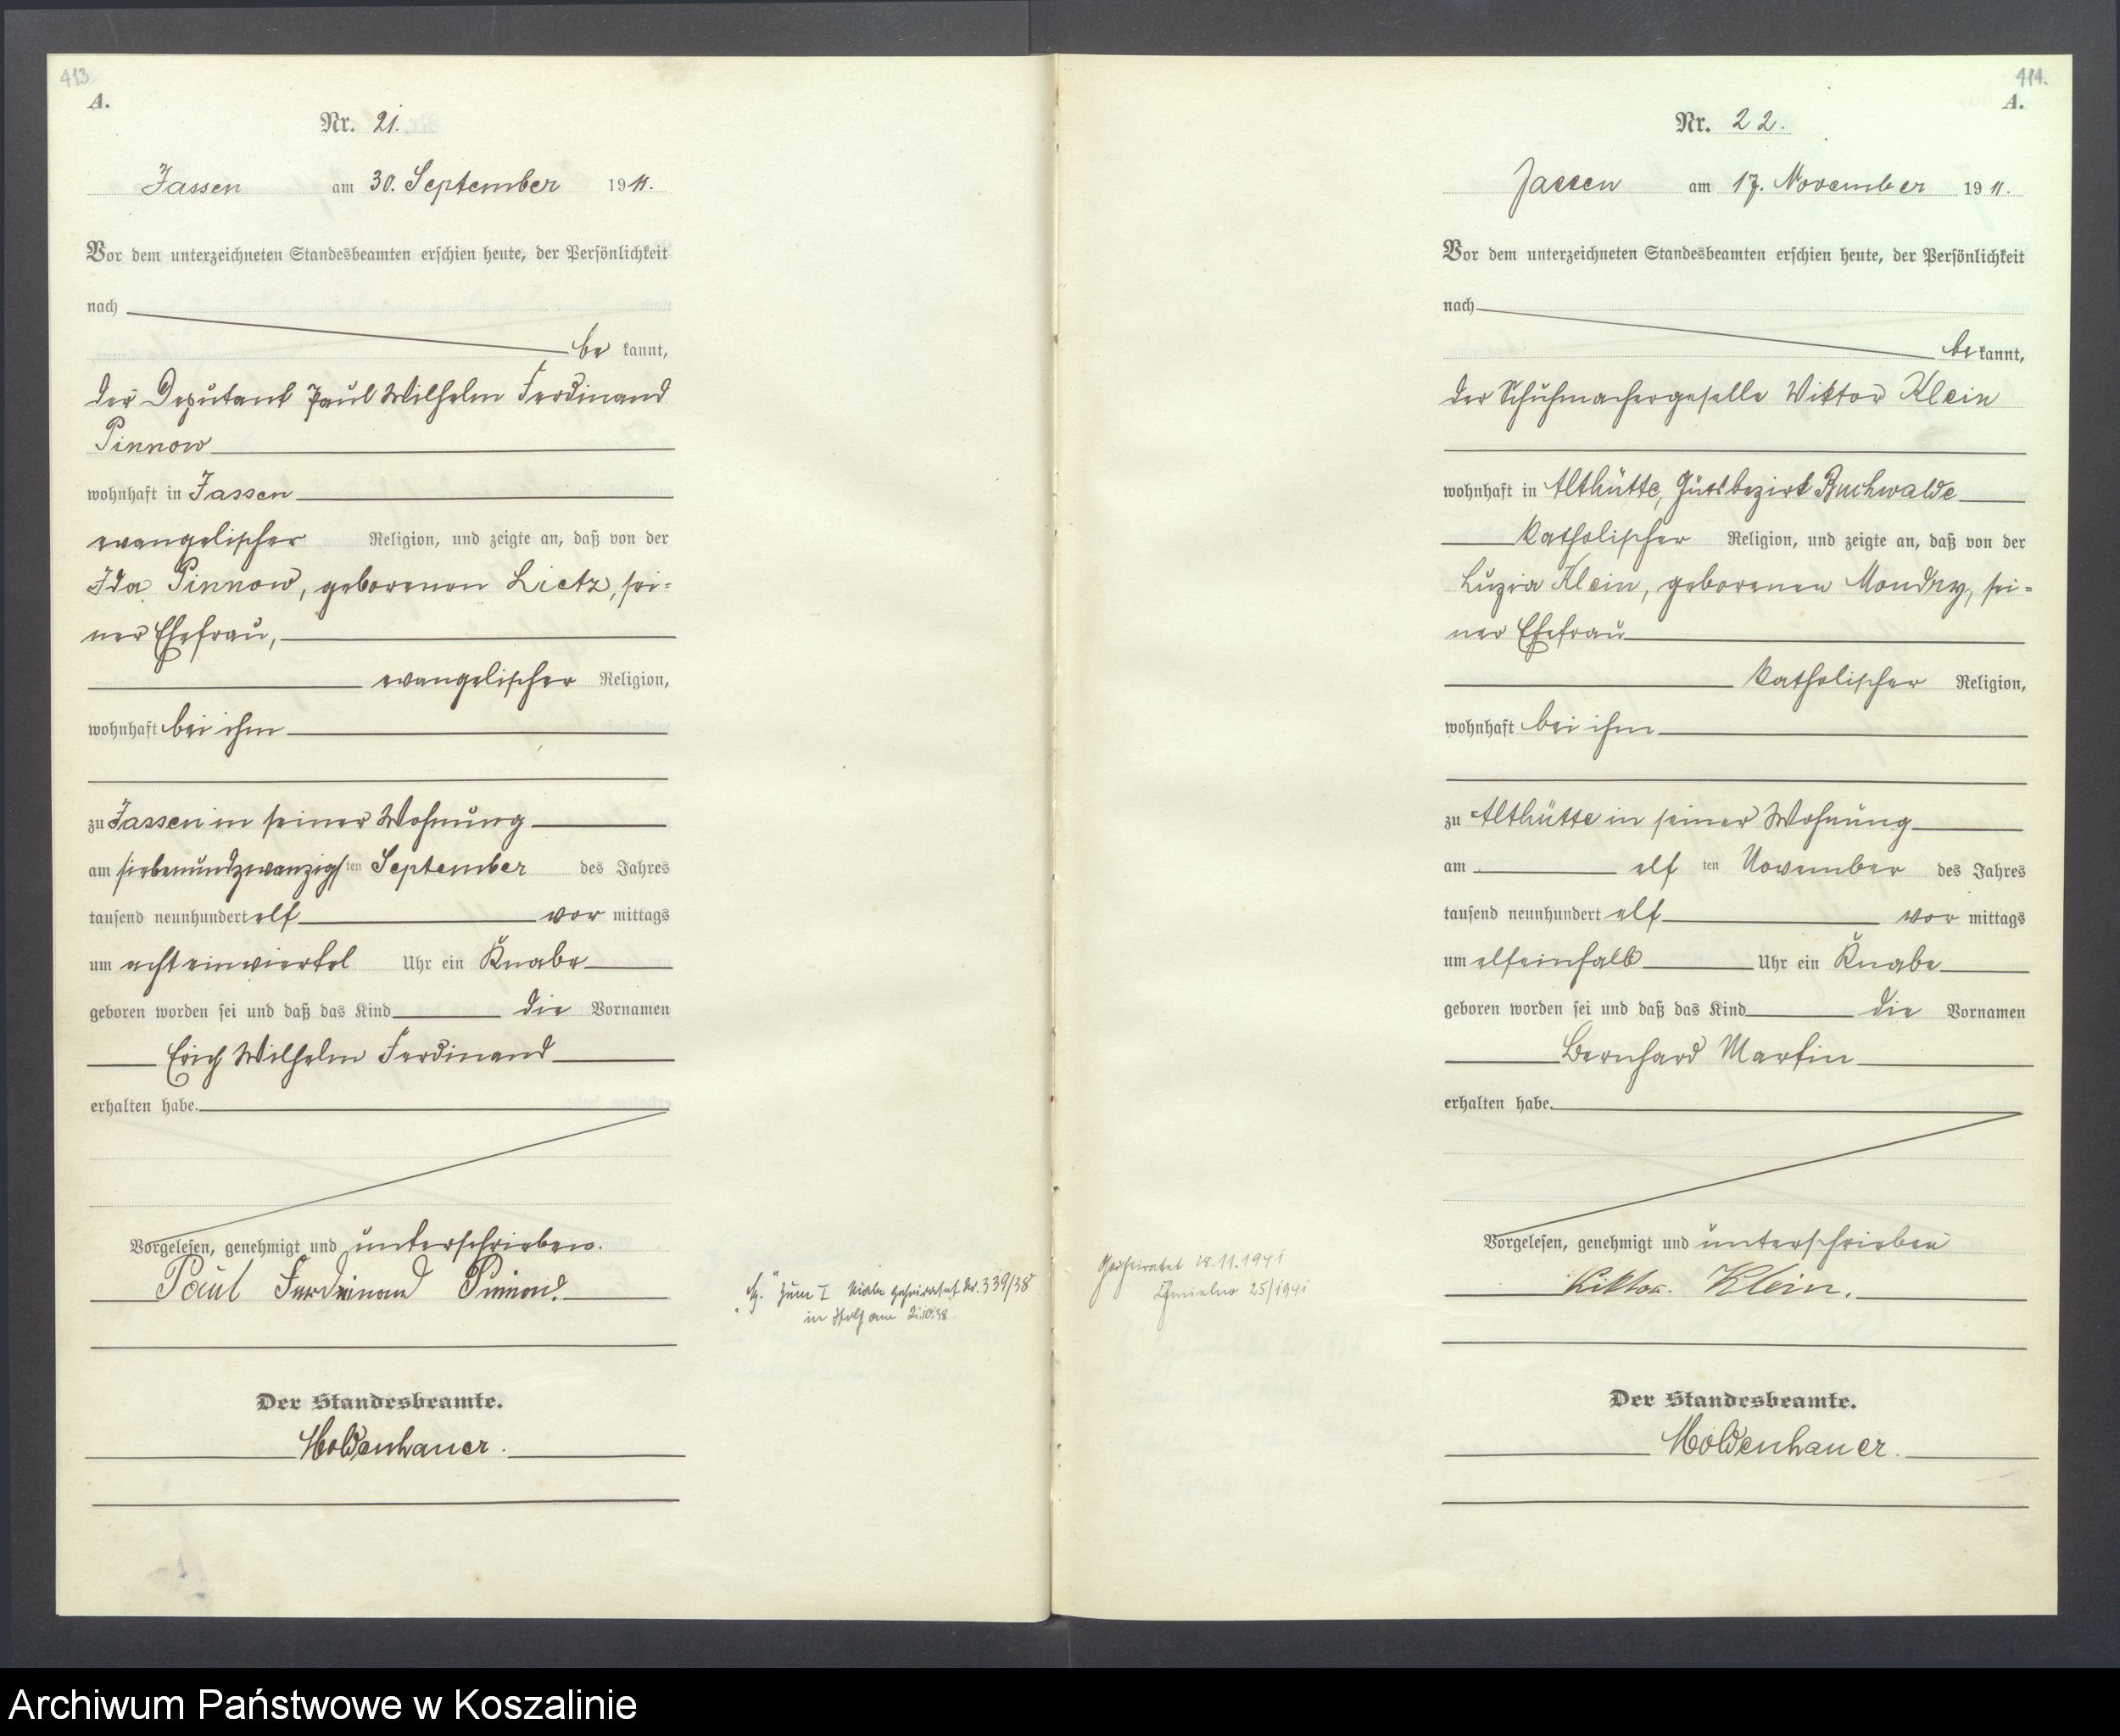 413.
A.
Nr. 21.
Jassen am 30. September 1911.
Vor dem unterzeichneten Standesbeamten erschien heute, der Persönlichkeit
nach
be kannt,
der Deputant Paul Wilhelm Ferdinand
Pinnow
wohnhaft in Jassen
evangelischer Religion, und zeigte an, daß von der
Ida Pinnow, geborenen Lietz, sei=
ner Ehefrau,
evangelischer Religion,
wohnhaft bei ihm
zu Jassen in seiner Wohnung
am siebenundzwanzigsten September des Jahres
tausend neunhundert elf vor mittags
um acht einviertel Uhr ein Knabe
geboren worden sei und daß das Kind die Vornamen
Erich Wilhelm Ferdinand
erhalten habe.
Vorgelesen, genehmigt und unterschrieben.
Paul Ferdinand Pinnow.
Der Standesbeamte.
Moldenhauer.
zum I geheiratet Nr. 339/38
in am
414.
A.
Nr. 22.
Jassen am 17. November 1911.
Vor dem unterzeichneten Standesbeamten erschien heute, der Persönlichkeit
nach
be kannt,
der Schuhmachergeselle Viktor Klein
wohnhaft in Althütte, Gutsbezirk Buchwalde
katholischer Religion, und zeigte an, daß von der
Luzia Klein, geborenen Mondry, sei=
ner Ehefrau
katholischer Religion,
wohnhaft bei ihm
zu Althütte in seiner Wohnung
am elf ten November des Jahres
tausend neunhundert elf vor mittags
um elfeinhalb Uhr ein Knabe
geboren worden sei und daß das Kind die Vornamen
Bernhard Martin
erhalten habe.
Vorgelesen, genehmigt und unterschrieben
Viktor. Klein.
Der Standesbeamte.
Moldenhauer.
Geheiratet 28.11.1941
25/1941
Archiwum Państwowe w Koszalinie